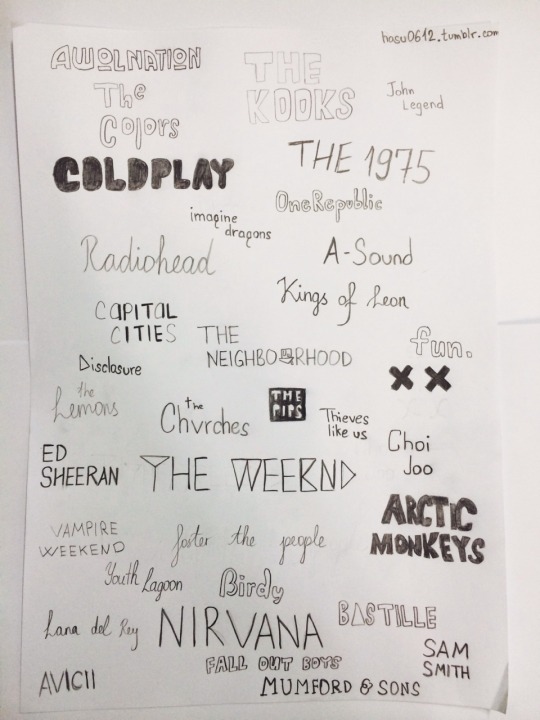 hasu0612.tumblr.com
AWOLNATION
THE
KOOKS
John
Legend
The
Colors
COLDPLAY
THE 1975
OneRepublic
imagine
dragons
Radiohead
A-Sound
Kings of Leon
CAPITAL
CITIES
THE
NEIGHBOURHOOD
fun.
Disclosure
XX
the
Lemons
the
Chvrches
THE
PIPS
Thieves
like us
Choi
Joo
ED
SHEERAN
THE WEEKND
ARCTIC
MONKEYS
VAMPIRE
WEEKEND
foster the people
Youth Lagoon
Birdy
BASTILLE
Lana del Rey
NIRVANA
FALL OUT BOYS
SAM
SMITH
AVICII
MUMFORD & SONS